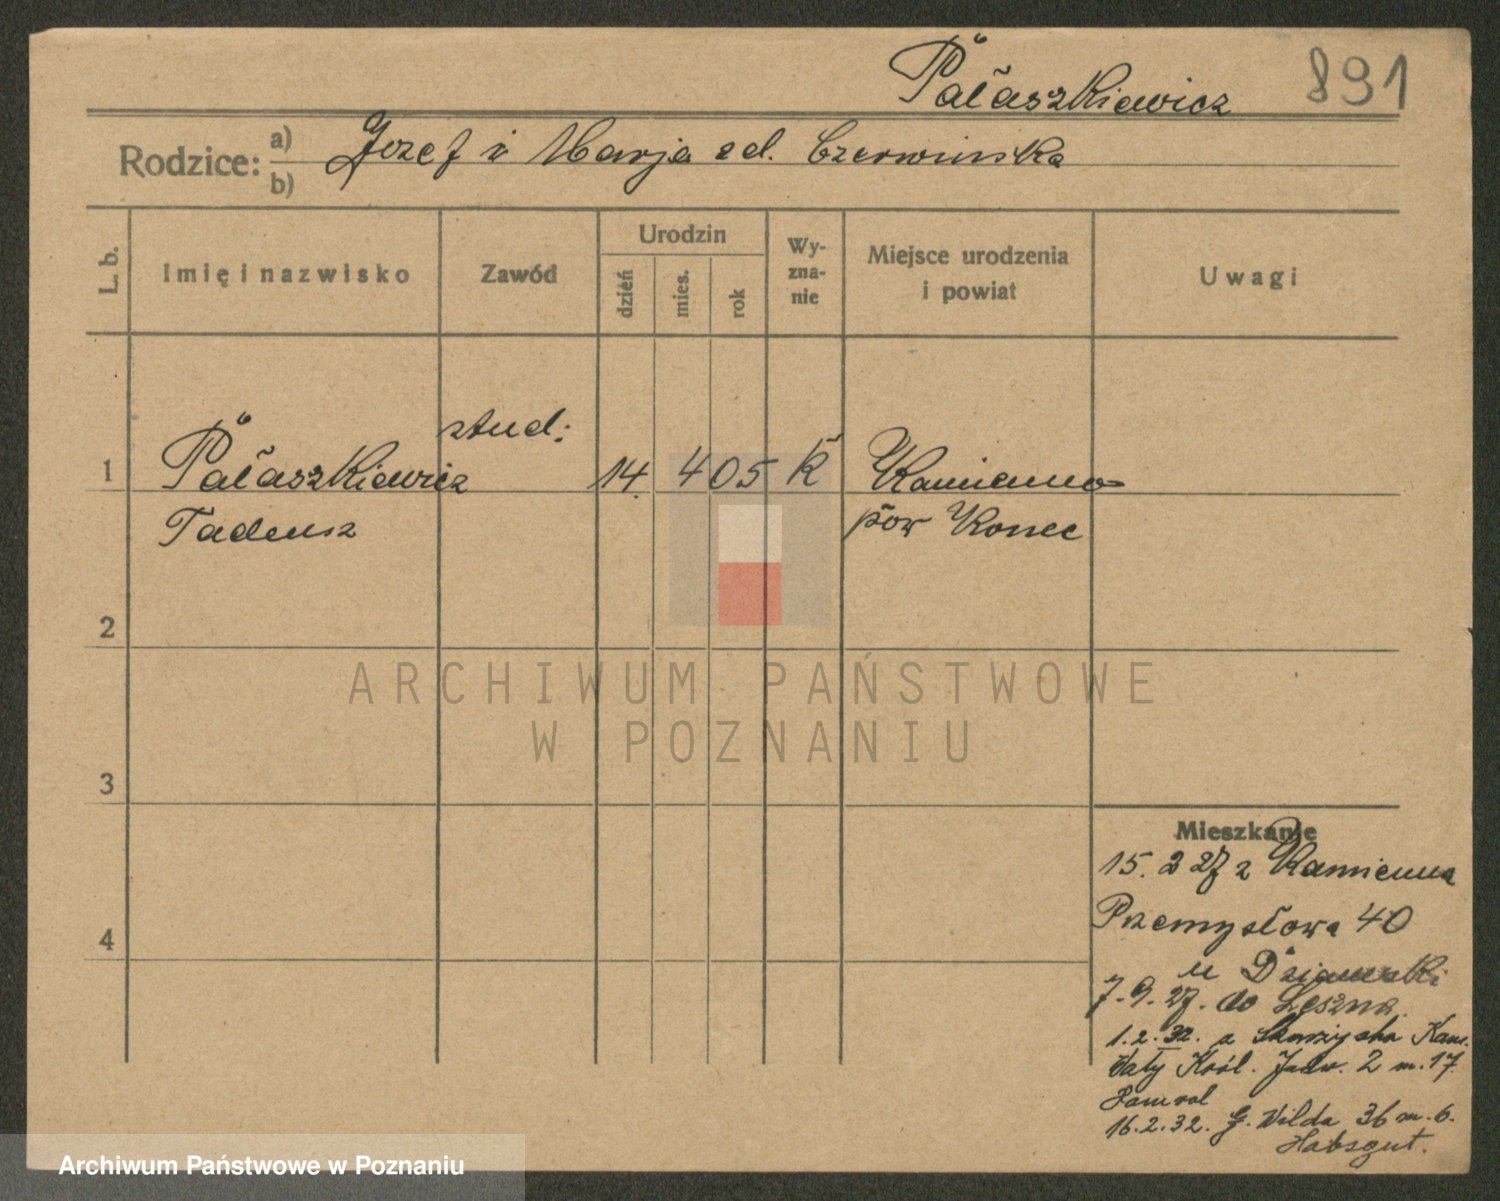 Pałaszkiewicz 891
Rodzice: a) Jozef i Marja z d. Czerwińska
b)
L. b. Imię i nazwisko Zawód Urodzin dzień mies. rok Wy-zna-nie Miejsce urodzenia i powiat Uwagi
stud:
1 Pałaszkiewicz 14. 4 05 k Kamienna
Tadeusz pow Konec
2
ARCHIWUM PAŃSTWOWE
W POZNANIU
3
Mieszkanie
15. 2 27 z Kamienna
Przemysłowa 40
4
u
7.9.27. do Leszna
1.2.32. z Skarżyska Kam.
Wały Król. Jadw. 2 m. 17.
16.2.32. G. Wilda 36 m. 6.
Habsgut.
Archiwum Państwowe w Poznaniu